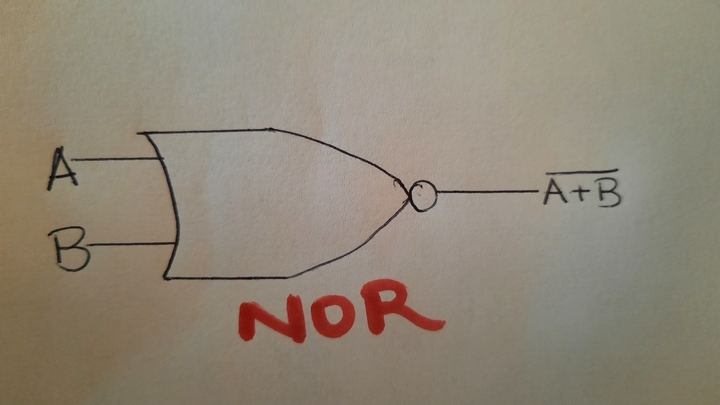 A
B
A̅+̅B̅
NOR